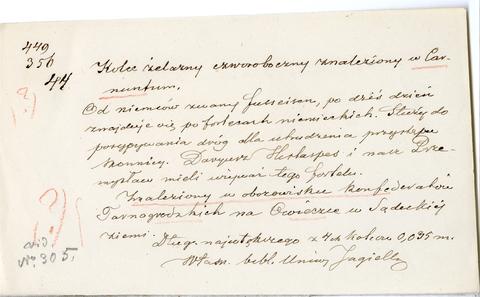 449
356
44
Kolec żelazny czworoboczny znaleziony w Car-
nuntum.
Od niemców zwany Fusseisen, po dziś dzień
znajduje się po fortecach niemieckich. Służy do
posypywania dróg dla utrudzenia przystępu
konnicy. Daryusz Histaspes i nasz Prze-
mysław mieli używać tego fortelu.
Znaleziony w obozowisku konfederatów
Tarnogrodzkich na w Sądeckiej
ziemi.
Długość największego z 4ch kolców 0,035 m.
Własn. bibl. Uniw. Jagiell.
?
?
vid.
No. 305.